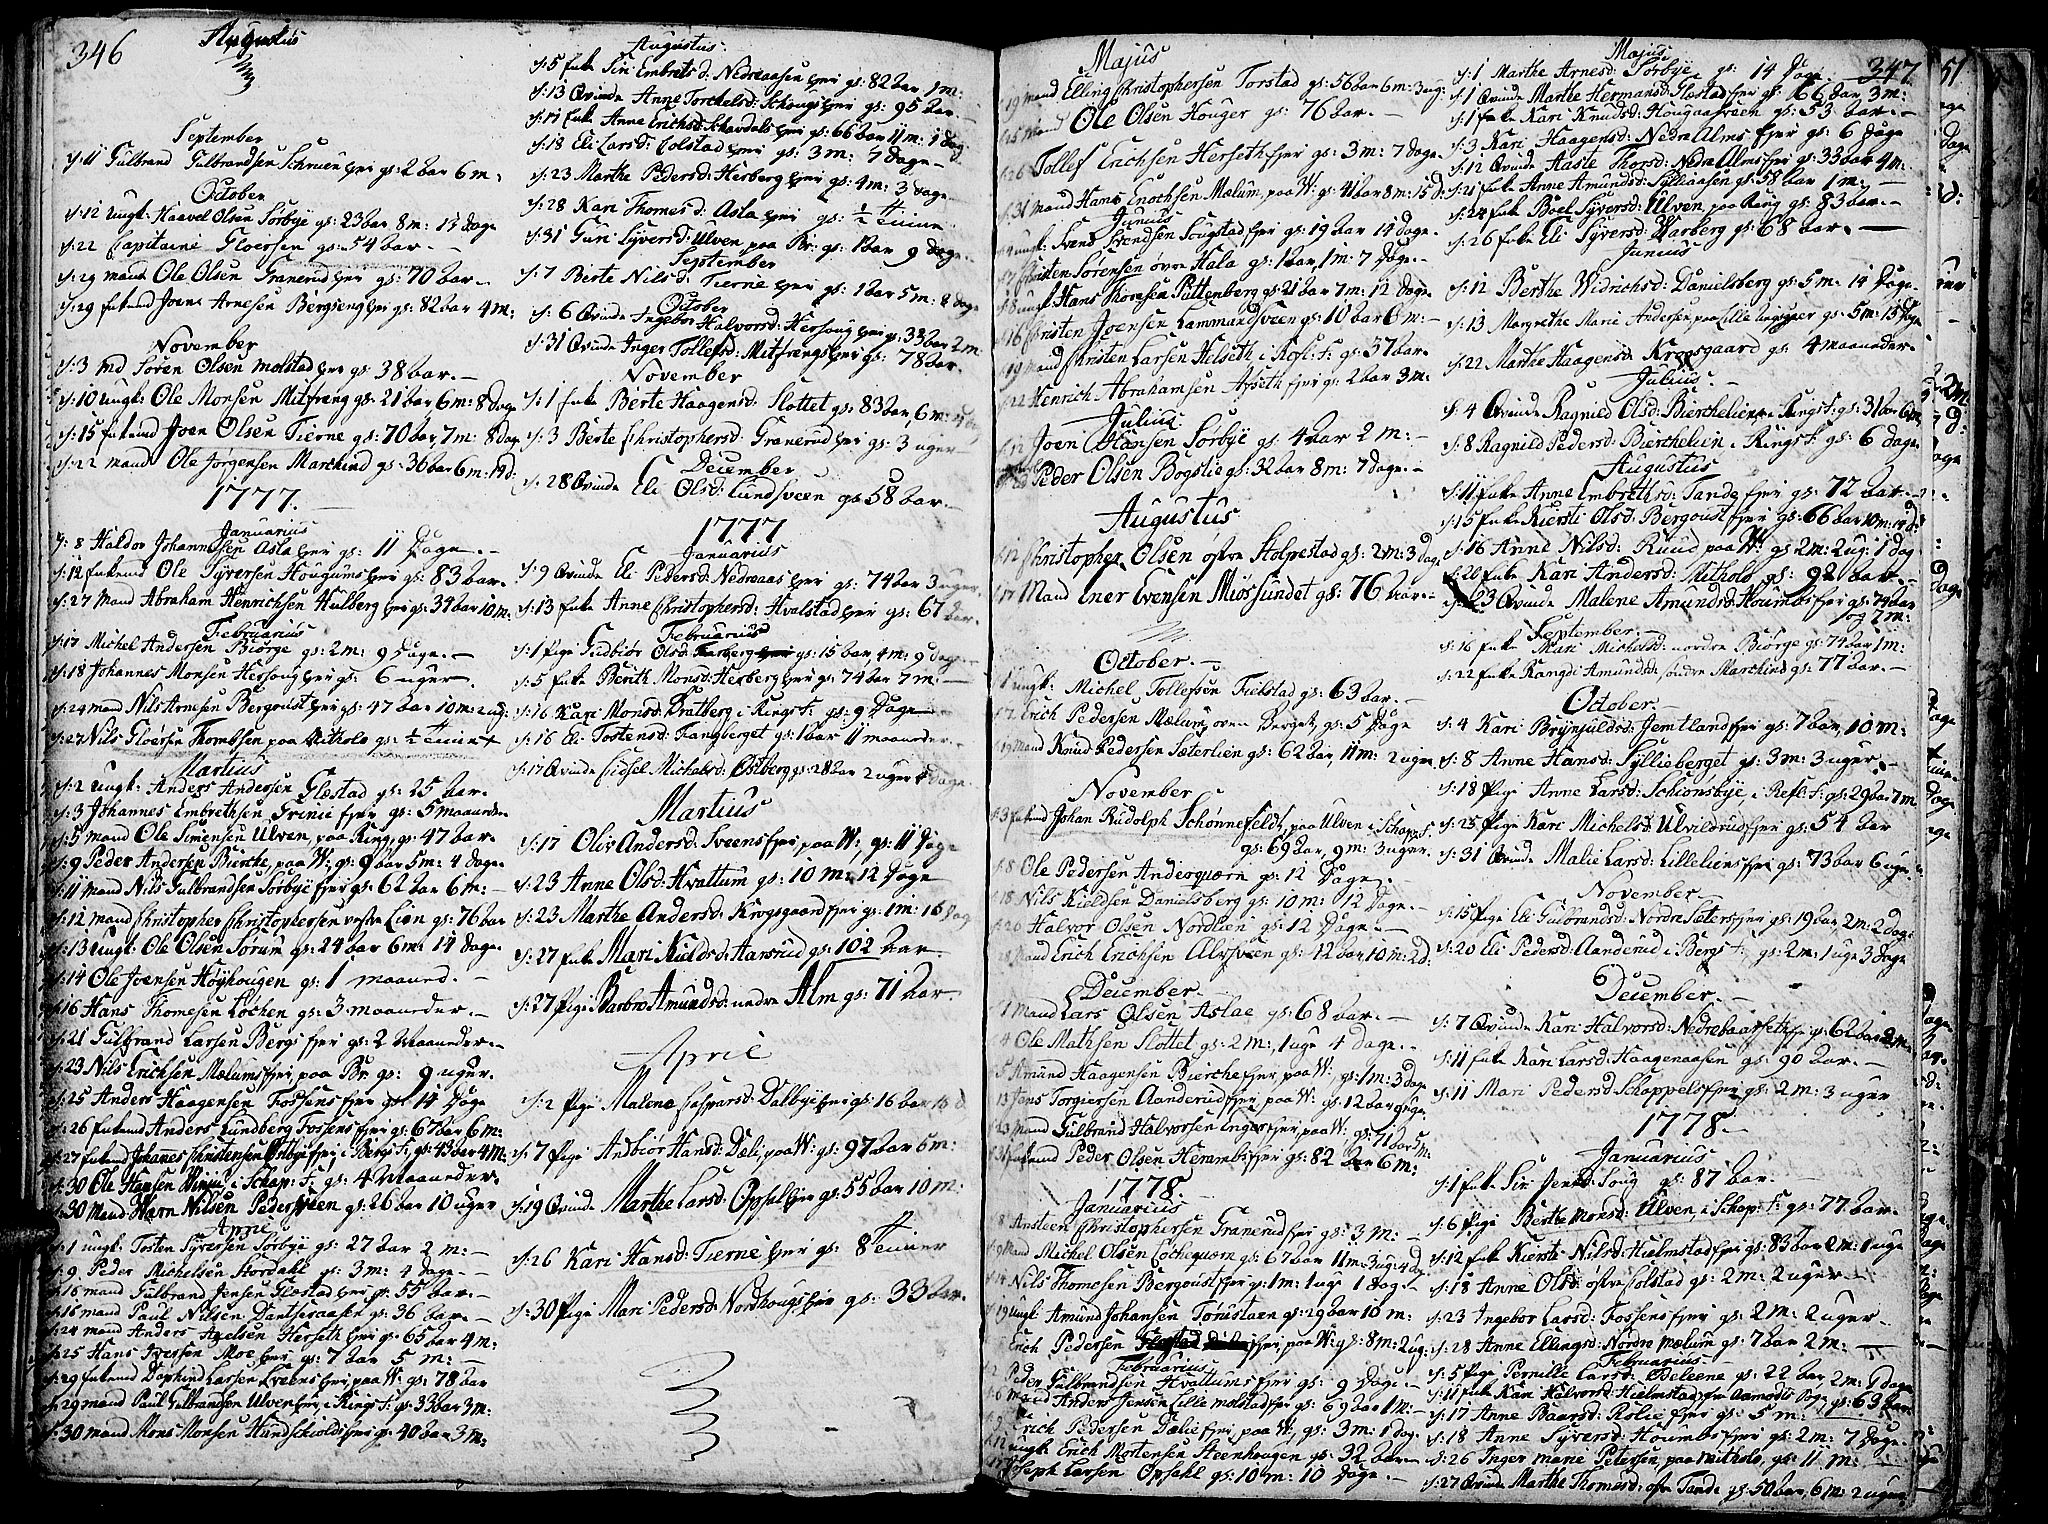 346
Augustus
September
d: 11 Gulbrand Gulbrandsen Schruen Ejer gs: 2 aar 6 m:
October
d: 12 Ungk: Haavel Olsen Sørbye gs: 23 aar 8 m: 13 dage
d: 22 Capitaine Floersen gs: 54 aar. —
d: 29 mand Ole Olsen Granerud Ejer gs: 70 aar. —
d: 29 Enkemd Joen Arnesen Bergseng Ejer gs: 82 aar 4 m:
November
d: 3 md Søren Olsen Molstad Ejer gs: 38 aar. —
d: 10 Ungk: Ole Monsen Mitfreng gs: 21 aar, 6 m: 8 dage
d: 15 Enkemd Joen Olsen Tierne gs: 70 aar, 7 m: 8 dag
d: 22 mand Ole Jørgensen Marchind gs: 36 aar 6 m: 19 d:
1777. —
Januarius
d: 8 Haldor Johannesen Asla Ejer gs: 11 Dage. —
d: 12 Enkemd Ole Syversen Hougums Ejer gs: 83 aar. —
d: 27 mand Abraham Henrichsen Hulberg Ejer gs: 34 aar 10 m:
Februarius
d: 17 Michel Andersen Biørge gs: 2 m: 9 Dage. —
d: 18 Johannes Monsen Hersoug Ejer gs: 6 uger.
d: 24 mand Nils Arnesen Bergoust Ejer gs: 47 aar 10 m: 2 ug:
d: 27 Nils Gloersen Thombsen paa Mitholo gs: ½ Time
Martius
d: 2 Ungk: Anders Andersen Glæstad gs: 25 aar. —
d: 3 Johannes Embrethsen Grinie Ejer gs: 5 maaneder
d: 5 mand Ole Simensen Ulven, paa Ring, gs: 47 aar. —
d: 9 Peder Andersen Bierche, paa W: gs: 9 aar 5 m: 4 dage
d: 11 mand Nils Gulbrandsen Sørbye Ejer gs: 62 aar 6 m: —
d: 12 mand Christopher Christophersen vestre Lien gs: 76 aar
d: 13 Ungk: Ole Olsen Sørum gs: 24 aar 6 m: 14 dage
d: 14 Ole Joensen Høyhougen gs: 1 maaned. —
d: 16 Hans Thomesen Løchen gs: 3 maaneder. —
d: 21 Gulbrand Larsen Bergs Ejer gs: 2 Maaneder. —
d: 23 Nils Erichsen Mælums Ejer paa Br: gs: 9 uger.
d: 25 Anders Haagensen Fossens Ejer gs 14 Dage
d: 26 Enkemd Anders Lundberg Fossens Ejer gs: 67 aar 6 m:
d: 27 Enkemd Johanes Christensen Ejer, i Bergs F: gs: 43 aar 4 m.
d: 30 Ole Hansen Winju, i Schap: F: gs: 4 Maaneder.
d: 30 Mand Warn Nilsen Pedersveen gs: 26 aar 10 uger
April
d: 1 Ungk: Tosten Syversen Sørbye gs: 27 aar 2 m: —
d: 9 Peder Michelsen Stordahl gs: 3 m: 4 dage. —
d: 16 mand Gulbrand Jensen Glæstad Ejer gs: 55 aar. —
d: 16 mand Paul Nilsen Dantseraasen gs: 36 aar. —
d: 24 mand Anders Axelsen Herseth Ejer gs: 65 aar 4 m:
d: 25 Hans Iversen Moe Ejer gs: 7 aar 5 m: —
d: 29 Enkemd Larsen Sveens Ejer paa W: gs: 78 aar
d: 29 mand Paul Gulbrandsen Ulven Ejer, i Rings F: gs: 33 aar 3 m:
d: 30 mand Mons Monsen Hundschiold Ejer gs: 40 aar 3 m:
Augustus.
d: 5 Enke Siri Embrets d: Nedreaasen Ejer gs: 82 aar 1 m:
d: 13 Qvinde Anne Torchelsd: Schougs Ejer gs: 95 aar. —
d: 17 Enke Anne Erichsd: Schavdals Ejer gs: 66 aar 11 m: 1 dag
d: 18 Eli Larsd: Colstad Ejer gs: 3 m: 7 Dage —
d: 23 Marthe Pedersd: Herberg Ejer gs: 4 m: 3 dage
d: 28 Kari Thomes d: Asla Ejer gs: ½ Time
d: 31 Guri Syversd: Ulven, paa Br: gs: 1 aar 9 dage.
September
d: 7 Berte Nils d: Tierne Ejer gs: 1 aar 5 m: 8 dage
October
d: 6 Qvinde Ingebor Halvorsd: Hersoug Ejer gs: 33 aar 2 m
d: 31 Qvinde Inger Tollefsd: Mitfrengs Ejer gs: 78 aar.
November
d: 1 Enke Berte Haagensd: Slottet gs: 83 aar, 6 m: 4 dag
d: 3 Berte Christophersd: Granerud Ejer gs: 3 uger —
December
d: 28 Qvinde Eli Olsd: Lundsveen gs 58 aar. —
1777
Januarius
d: 9 Qvinde Eli Pedersd: Nedreaas Ejer gs: 74 aar 3 uger.
d: 13 Enke Anne Christophersd: Hvalstad Ejer gs: 67 aar
Februarius
d: 1 Pige Gudbiør Olsd: gs: 15 aar, 4 m: 9 dag
d: 5 Enke Berith Monsd: Herberg Ejer gs: 74 aar 7 m: —
d: 16 Kari Monsd: Bratberg i Rings F: gs: 9 Dage
d: 16 Eli Tostensd: Frangberget gs: 1 aar 11 maaneder —
d: 17 Qvinde Sidsel Michelsd: Østberg gs: 28 aar 2 uger 4 dage.
Martius
d: 17 Oliv Andersd: Sveens Ejer, paa W: gs: 11 Dage
d: 23 Anne Olsd: Hvattum gs: 10 m: 12 Dage
d: 23 Marthe Andersd: Krogsgaard Ejer gs: 1 m: 16 dag
d: 27 Enke Mari Kieldsd: Hansrud gs: 102 aar
d: 27 Pige Barbro Amundsd: nedre Alm gs: 71 aar. —
April
d: 2 Pige Malene Caspersd: Dalbye Ejer gs: 16 aar 16 d
d: 7 Pige Andbiør Hansd: Deli, paa W: gs: 97 aar 6 m:
d: 19 Qvinde Marthe Larsd: Opsal Ejer gs: 55 aar 10 m:
d: 26 Kari Hansd: Tierne Ejer gs: 8 Timer
d: 30 Pige Mari Pedersd: Nordhougs Ejer gs: 33 aar.
Majus
d: 19 mand Elling Christophersen Torstad gs: 56 aar 6 m: 3 ug:
d: 25 mand Ole Olsen Houger gs: 76 aar. —
d: 26 Tollef Erichsen Herseth Ejer gs: 3 m: 7 dage.
d: 31 mand Hans Enochsen Mælum, paa W: gs: 41 aar 8 m: 15 d:
Junius
d: 4 ungk: Svend Svendsen Sougstad Ejer gs: 19 aar 14 dage.
d: 7 Christen Sørensen øvre Hala gs: 1 aar, 1 m: 7 Dage. —
d: 8 ungk Hans Thomesen Puttenberg gs: 21 aar 7 m: 12 dage
d: 16 Christen Joensen Lammandsveen gs: 10 aar 6 m: —
d: 19 mand Christen Larsen Helseth i Refl: F: gs: 37 aar.
d: 22 Henrich Abrahamsen Aaseth Ejer gs: 2 aar 3 m:
Julius
d: 12 Joen Hansen Sørbye gs: 4 aar 2 m: —
Peder Olsen Bogstie gs: 32 aar 8 m: 7 dage. —
Augustus
d: 12 Christopher Olsen øfre Stolpestad gs: 2 m: 3 dag
d: 17 Mand Ener Evensen Miøssundet gs: 76 aar. —
October. —
d: 1 ungk: Michel Tollefsen Fielstad gs: 63 aar. —
d: 7 Erich Pedersen Mælum, Berget, gs: 5 Dage
d: 19 mand Knud Pedersen Sæterlien gs: 62 aar, 11 m: 2 uger
November
d: 3 Enkemd Johan Rudolph Schønnefeldt, paa Ulven i Schap: F:
gs: 69 aar, 9 m: 3 uger
d: 8 Ole Pedersen Anderquærn gs: 12 Dage.
d: 18 Nils Kieldsen Danielsberg gs: 10 m: 12 dage. —
d: 20 Halvor Olsen Nordlien gs: 12 Dage. —
d: 28 mand Erich Erichsen Ellevsveen gs: 42 aar 10 m: 2 d.
December. —
d: 1 mand Lars Olsen Aslae gs: 68 aar. —
d: 4 Ole Mathsen Slottet gs: 2 m:, 1 uge 4 dage. —
d: 5 Amund Haagensen Bierche Ejer, paa W:, gs: 1 m: 3 dage
d: 13 Jens Torgiersen Aanderud Ejer, paa W: gs: 12 aar 9 uge
d: 23 mand Gulbrand Halvorsen Enger Ejer, paa W: gs: 71 aar 5 m:
Enkemd Peder Olsen Herembs Ejer gs: 82 aar 6 m:
1778.
Januarius
d: 8 Ansteen Christophersen Granerud Ejer gs: 3 m: —
d: 9 mand Michel Olsen Løchequærn gs: 67 aar 11 m: 3 ug: 4 dg
d: 14 Nils Thomesen Bergoust Ejer gs: 1 m: 1 uge 1 dag. —
d: 19 ungk: Amund Johansen Torudstuen gs: 29 aar 10 m:
Erich Pedersen Ejer, paa W: gs: 8 m: 2 ug:
Februarius
d: 2 Peder Gulbrandsen Hvattums Ejer gs: 9 Dage. —
d: 6 mand Anders Jensen Lille Molstad Ejer gs: 69 aar 1 m: —
Erich Pedersen Dælie Ejer, paa W:, gs: 3 m: 1 dag.
d: 12 ungk: Erich Mortensen Steenhougen gs: 32 aar. —
d: 17 Joseph Larsen Opsahl gs: 10 m: 10 Dage. —
Majus
347
d: 1 Marthe Arnesd: Sørbye gs: 14 Dage.
d: 1 Qvinde Marthe Hermansd: Glestad Ejer gs: 66 aar 3 m:
d: 1 Enke Kari Knudsd: Hougaasveen gs: 53 aar. —
d: 3 Kari Haagensd: Nedre Alms Ejer gs: 6 Dage
d: 12 Qvinde Aasle Thorsd: Nedre Alms Ejer gs: 33 aar 4 m.
d: 21 Enke Anne Amundsd: Sylliaasen gs: 58 aar 1 m: —
d: 24 Enke Boel Syversd: Ulven, paa Ring gs: 83 aar. —
d: 26 Enke Eli Syversd: Warberg gs: 68 aar. —
Junius
d: 12 Berthe Widrichsd: Danielsberg gs: 5 m: 14 Dage
d: 13 Margrethe Marie Andersen, paa Lille Ingvær gs: 5 m: 15 Dage
d: 22 Marthe Haagensd: Krogsgaard gs: 4 maaneder.
Julius. —
d: 4 Qvinde Ragnild Olsd: Bierchelien, i Rings F: gs: 31 aar 6 m:
d: 8 Ragnild Pedersd: Bierchelien i Rings F: gs: 6 dage.
Augustus
d: 11 Enke Anne Embrethsd: Tande Ejer gs: 72 aar. —
d: 15 Enke Kiersti Olsd: Bergoust Ejer gs: 66 aar 10 m: 14 d:
d: 16 Anne Nilsd: Ruud paa W: gs 2 m: 2 ug: 1 dag
d: 20 Enke Kari Andersd: Mitholo, gs: 92 aar. —
d: 23 Qvinde Malene Amundsd: Houmbs Ejer gs: 74 aar
og 7 m:
September. —
d: 16 Enke Mari Michelsd: nordre Biørge gs: 74 aar 1 m:
d: 22 Enke Rangdi Amundsd: søndre Marchind gs: 77 aar. —
October. —
d: 4 Kari Brynjuldsd: Jemtland Ejer gs: 7 aar, 10 m:
d: 8 Anne Hansd: Syllieberget gs: 3 m: 3 uger. —
d: 18 Pige Anne Larsd: Schiønsbye, i Refl: F: gs: 29 aar 7 m.
d: 25 Pige Kari Michelsd: Ulvildrud Ejer gs: 54 aar
d: 31 Qvinde Malie Larsd: Lilleliens Ejer gs: 73 aar 6 uge.
November. —
d: 15 Pige Eli Gulbrandsd: Nordre Sæters Ejer gs: 19 aar 2 m: 2 dag:
d: 20 Eli Pedersd: Aanderud i Bergs F: gs: 2 m: 1 uge 3 Dage
December. —
d: 7 Qvinde Kari Halvorsd: Nedrebaarseth Ejer gs: 62 aar 2 m:
d: 11 Enke Kari Larsd: Haagenaasen gs: 90 aar. —
d: 11 Mari Pedersd: Schappels Ejer gs: 2 m: 3 uger
1778. —
Januarius
d: 1 Enke Siri Jensd: Soug gs: 87 aar. —
d: 6 Pige Berthe Monsd: Ulven, i Schap: F: gs: 77 aar. —
d: 12 Enke Kiersti Nilsd: Hielmstad Ejer gs: 83 aar 2 m: 1 uge
d: 18 Anne Olsd: øfre Colstad gs: 2 m: 2 uger. —
d: 23 Ingebor Larsd: Fossens Ejer gs: 2 m: 2 uger. —
d: 28 Anne Ellingsd: Nordre Mælum gs: 7 aar 2 m: —
Februarius —
d: 5 Pige Pernille Larsd: Beleene gs: 22 aar 2 m: 9 dage
d: 11 Enke Kari Halvorsd: Hielmstad Ejer gs: 63 aar.
d: 17 Anne Baarsd: Rolie Ejer gs: 5 m: —
d: 18 Anne Syversd: Houmbs Ejer gs: 2 m: 7 Dage. —
d: 26 Inger Marie Petersen, paa Mitholo, gs: 11 m: —
d: 27 Qvinde Marthe Thomesd: øfre Tande gs: 50 aar, 6 m: 2 uger
51